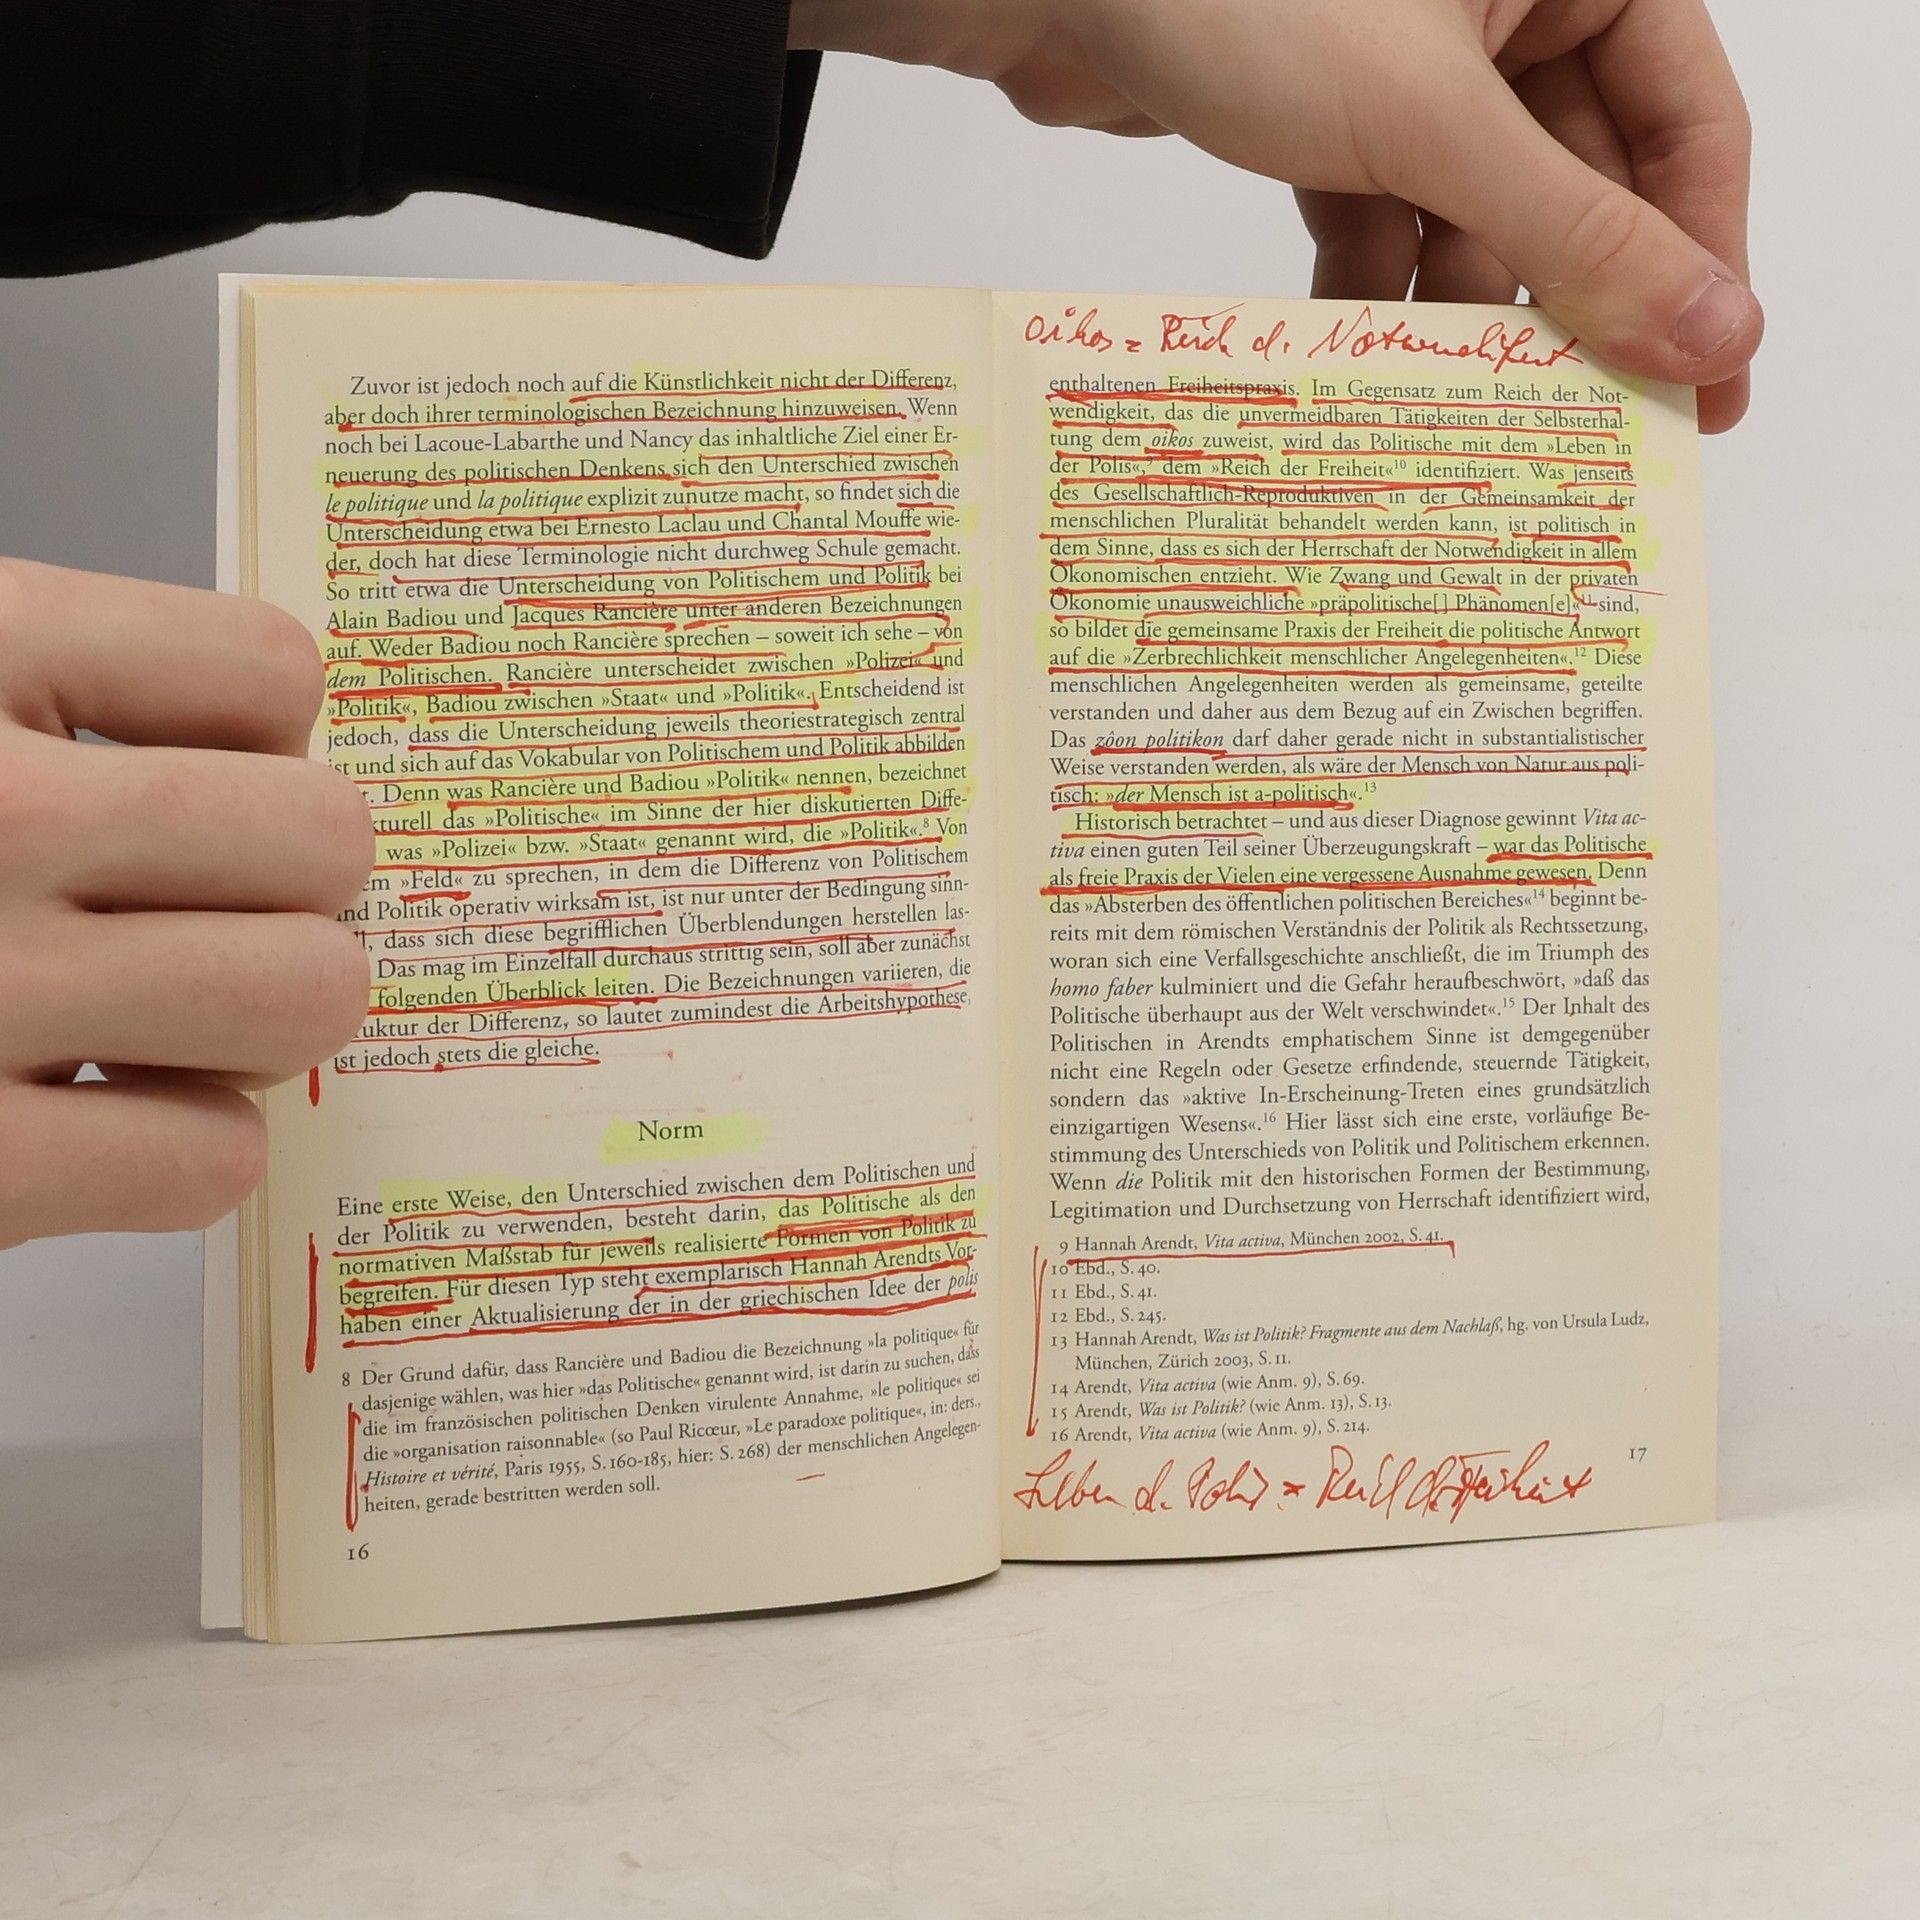 Zuvor ist jedoch noch auf die Künstlichkeit nicht der Differenz,
aber doch ihrer terminologischen Bezeichnung hinzuweisen. Wenn
noch bei Lacoue-Labarthe und Nancy das inhaltliche Ziel einer Er-
neuerung des politischen Denkens sich den Unterschied zwischen
le politique und la politique explizit zunutze macht, so findet sich die
Unterscheidung etwa bei Ernesto Laclau und Chantal Mouffe wie-
der, doch hat diese Terminologie nicht durchweg Schule gemacht.
So tritt etwa die Unterscheidung von Politischem und Politik bei
Alain Badiou und Jacques Rancière unter anderen Bezeichnungen
auf. Weder Badiou noch Rancière sprechen – soweit ich sehe – von
dem Politischen. Rancière unterscheidet zwischen »Polizei« und
»Politik«, Badiou zwischen »Staat« und »Politik«. Entscheidend ist
jedoch, dass die Unterscheidung jeweils theoriestrategisch zentral
ist und sich auf das Vokabular von Politischem und Politik abbilden
Denn was Rancière und Badiou »Politik« nennen, bezeichnet
kturell das »Politische« im Sinne der hier diskutierten Diffe-
was »Polizei« bzw. »Staat« genannt wird, die »Politik«.8 Von
em »Feld« zu sprechen, in dem die Differenz von Politischem
und Politik operativ wirksam ist, ist nur unter der Bedingung sinn-
l, dass sich diese begrifflichen Überblendungen herstellen las-
Das mag im Einzelfall durchaus strittig sein, soll aber zunächst
folgenden Überblick leiten. Die Bezeichnungen variieren, die
uktur der Differenz, so lautet zumindest die Arbeitshypothese,
ist jedoch stets die gleiche.
Norm
Eine erste Weise, den Unterschied zwischen dem Politischen und
der Politik zu verwenden, besteht darin, das Politische als den
normativen Maßstab für jeweils realisierte Formen von Politik zu
begreifen. Für diesen Typ steht exemplarisch Hannah Arendts Vor-
haben einer Aktualisierung der in der griechischen Idee der polis
8 Der Grund dafür, dass Rancière und Badiou die Bezeichnung »la politique« für
dasjenige wählen, was hier »das Politische« genannt wird, ist darin zu suchen, dass
die im französischen politischen Denken virulente Annahme, »le politique« sei
die »organisation raisonnable« (so Paul Ricœur, »Le paradoxe politique«, in: ders.,
Histoire et vérité, Paris 1955, S. 160-185, hier: S. 268) der menschlichen Angelegen-
heiten, gerade bestritten werden soll.
16
oikos = Reich d. Notwendigkeit
enthaltenen Freiheitspraxis. Im Gegensatz zum Reich der Not-
wendigkeit, das die unvermeidbaren Tätigkeiten der Selbsterhal-
tung dem oikos zuweist, wird das Politische mit dem »Leben in
der Polis«,9 dem »Reich der Freiheit«10 identifiziert. Was jenseits
des Gesellschaftlich-Reproduktiven in der Gemeinsamkeit der
menschlichen Pluralität behandelt werden kann, ist politisch in
dem Sinne, dass es sich der Herrschaft der Notwendigkeit in allem
Ökonomischen entzieht. Wie Zwang und Gewalt in der privaten
Ökonomie unausweichliche »präpolitische[] Phänomen[e]«11 sind,
so bildet die gemeinsame Praxis der Freiheit die politische Antwort
auf die »Zerbrechlichkeit menschlicher Angelegenheiten«.12 Diese
menschlichen Angelegenheiten werden als gemeinsame, geteilte
verstanden und daher aus dem Bezug auf ein Zwischen begriffen.
Das zôon politikon darf daher gerade nicht in substantialistischer
Weise verstanden werden, als wäre der Mensch von Natur aus poli-
tisch: »der Mensch ist a-politisch«.13
Historisch betrachtet – und aus dieser Diagnose gewinnt Vita ac-
tiva einen guten Teil seiner Überzeugungskraft – war das Politische
als freie Praxis der Vielen eine vergessene Ausnahme gewesen. Denn
das »Absterben des öffentlichen politischen Bereiches«14 beginnt be-
reits mit dem römischen Verständnis der Politik als Rechtssetzung,
woran sich eine Verfallsgeschichte anschließt, die im Triumph des
homo faber kulminiert und die Gefahr heraufbeschwört, »daß das
Politische überhaupt aus der Welt verschwindet«.15 Der Inhalt des
Politischen in Arendts emphatischem Sinne ist demgegenüber
nicht eine Regeln oder Gesetze erfindende, steuernde Tätigkeit,
sondern das »aktive In-Erscheinung-Treten eines grundsätzlich
einzigartigen Wesens«.16 Hier lässt sich eine erste, vorläufige Be-
stimmung des Unterschieds von Politik und Politischem erkennen.
Wenn die Politik mit den historischen Formen der Bestimmung,
Legitimation und Durchsetzung von Herrschaft identifiziert wird,
9 Hannah Arendt, Vita activa, München 2002, S. 41.
10 Ebd., S. 40.
11 Ebd., S. 41.
12 Ebd., S. 245.
13 Hannah Arendt, Was ist Politik? Fragmente aus dem Nachlaß, hg. von Ursula Ludz,
München, Zürich 2003, S. 11.
14 Arendt, Vita activa (wie Anm. 9), S. 69.
15 Arendt, Was ist Politik? (wie Anm. 13), S. 13.
16 Arendt, Vita activa (wie Anm. 9), S. 214.
17
Leben d. Polis = Reich d. Freiheit